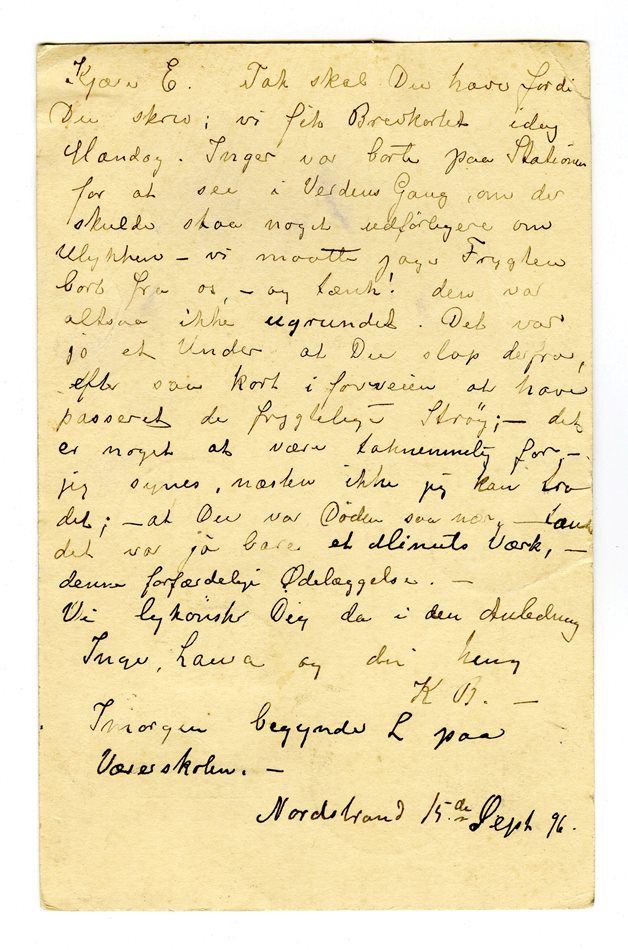 Kjære E. Tak skal Du have fordi
Du skrev; vi fik Brevkortet idag
Mandag. Inger var borte paa Stationen
for at see i Verdens Gang, om der
skulde staa noget udførligere om
Ulykken – vi maatte jage Frygten
bort fra os, – og tænk! den var
altsaa ikke ugrundet. Det var
jo et Under at Du slap derfra,
efter saa kort i forveien at have
passeret de frygtelige Strøg; – det
er noget at være taknemmelig for, –
jeg synes, næsten ikke jeg kan tro
det; – at Du var Døden saa nær, – tænk
det var jo bare et Minuts Værk, –
denne forfærdelige Ødelæggelse. –
Vi lykønsker Dig da i den Anledning
Inger, Laura og din heng
K B. –
Imorgen begynder L paa
Væverskolen. –
Nordstrand 15de Sept 96.